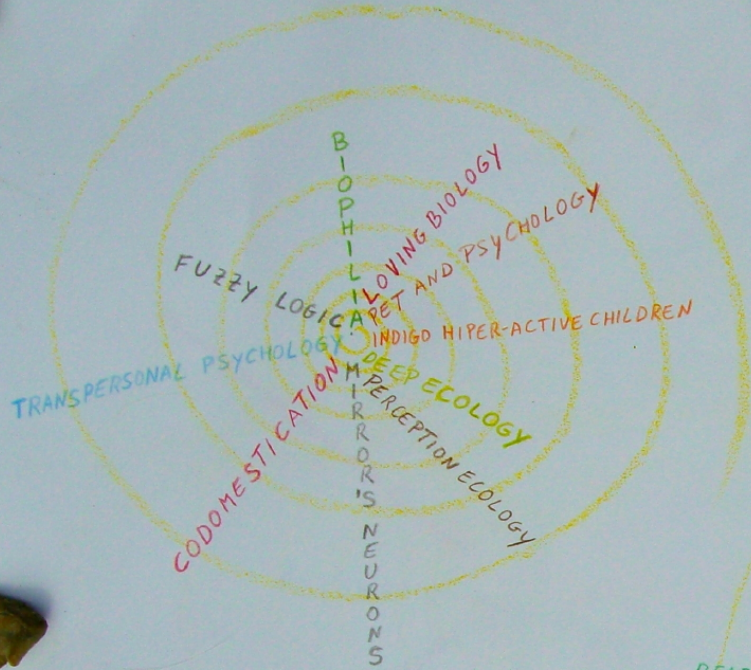 BIOPHILIA
LOVING BIOLOGY
PET AND PSYCHOLOGY
INDIGO HIPER-ACTIVE CHILDREN
DEEP ECOLOGY
PERCEPTION ECOLOGY
MIRROR'S NEURONS
CODOMESTICATION
TRANSPERSONAL PSYCHOLOGY
FUZZY LOGIC